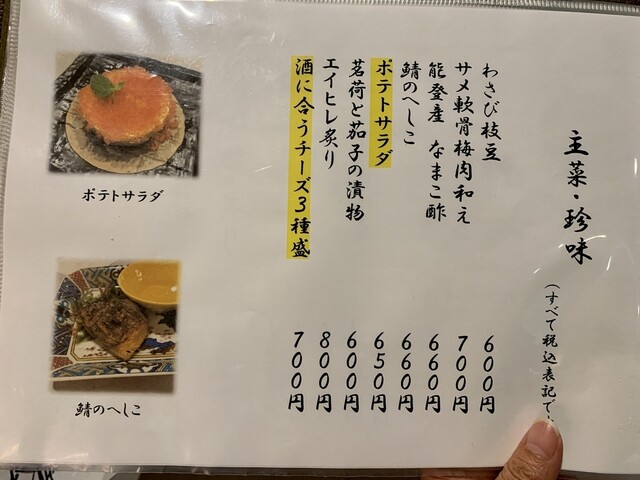 主菜・珍味
(すべて税込表記で
わさび枝豆 600円
サメ軟骨梅肉和え 700円
能登産 なまこ酢 660円
鯖のへしこ 660円
ポテトサラダ 650円
茗荷と茄子の漬物 600円
エイヒレ炙り 800円
酒に合うチーズ3種盛 700円
ポテトサラダ
鯖のへしこ